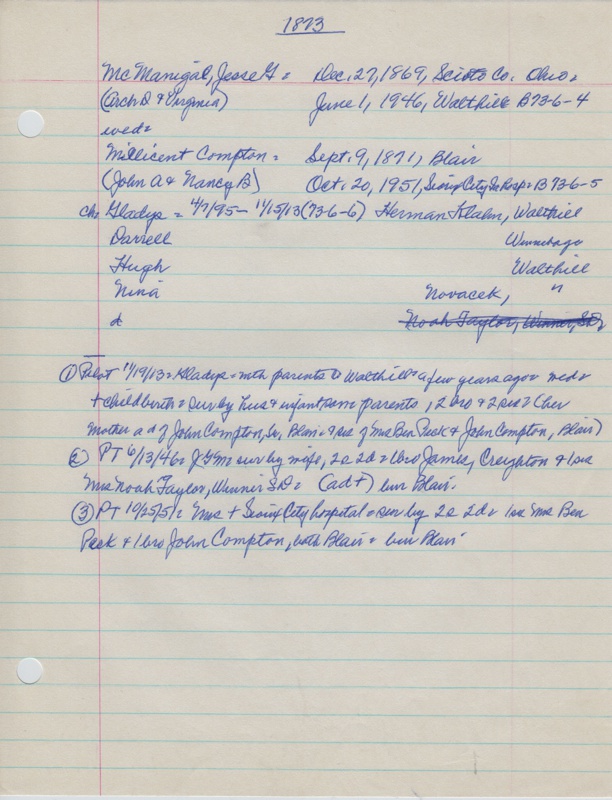 1873
McManigal, Jesse G = Dec. 27, 1869, Scioto Co. Ohio =
(Arch D & Virginia) June 1, 1946, Walthill B73-6-4
wed =
Millicent Compton = Sept. 9, 1871, Blair
(John A & Nancy B) Oct. 20, 1951, Sioux City Ia Hosp = B73-6-5
ch: Gladys = 4/7/95 - 11/15/13 (73-6-6) Herman Klahn, Walthill
Darrell Winnebago
Hugh Walthill
Nina Novacek, "
d Noah Taylor, Winner, S.D.
① Pilot 11/19/13 = Gladys = mth parents to Walthill = a few years ago = wed =
+ childbirth = sur by hus & infant son parents, 2 bro & 2 sis = (her
mother a d of John Compton, Sr, Blair = & sis of Mrs Ben Peck & John Compton, Blair)
② PT 6/13/46 = J G M = sur by wife, 2s 2d = 1 bro James, Creighton & 1 sis
Mrs Noah Taylor, Winner S.D = (ad +) bur Blair.
③ PT 10/25/51 = Mrs + Sioux City hospital = sur by 2s 2d = 1 sis Mrs Ben
Peck & 1 bro John Compton, both Blair = bur Blair